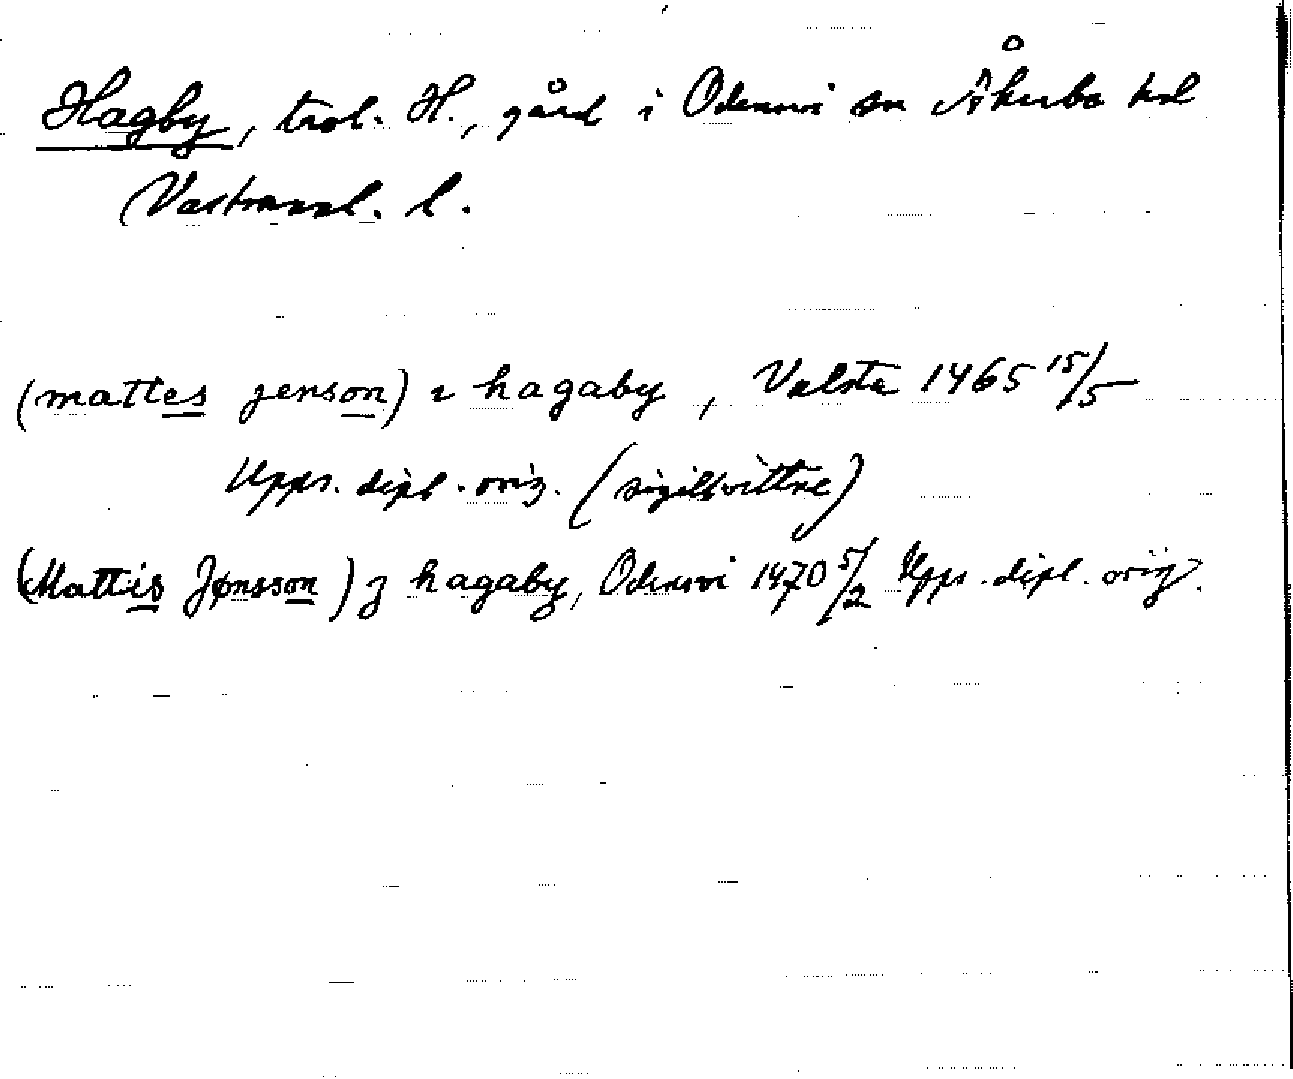 Hagby, trol. H., gård i Odensvi sn Åkerbo hd
Västmanl. l.
(mattes jenson) z hagaby, Valsta 1465 15/5
Upps. dipl. orig. (sigillvittne)
(Mattis Jønsson) j hagaby, Odensvi 1470 5/2 Upps. dipl. orig.